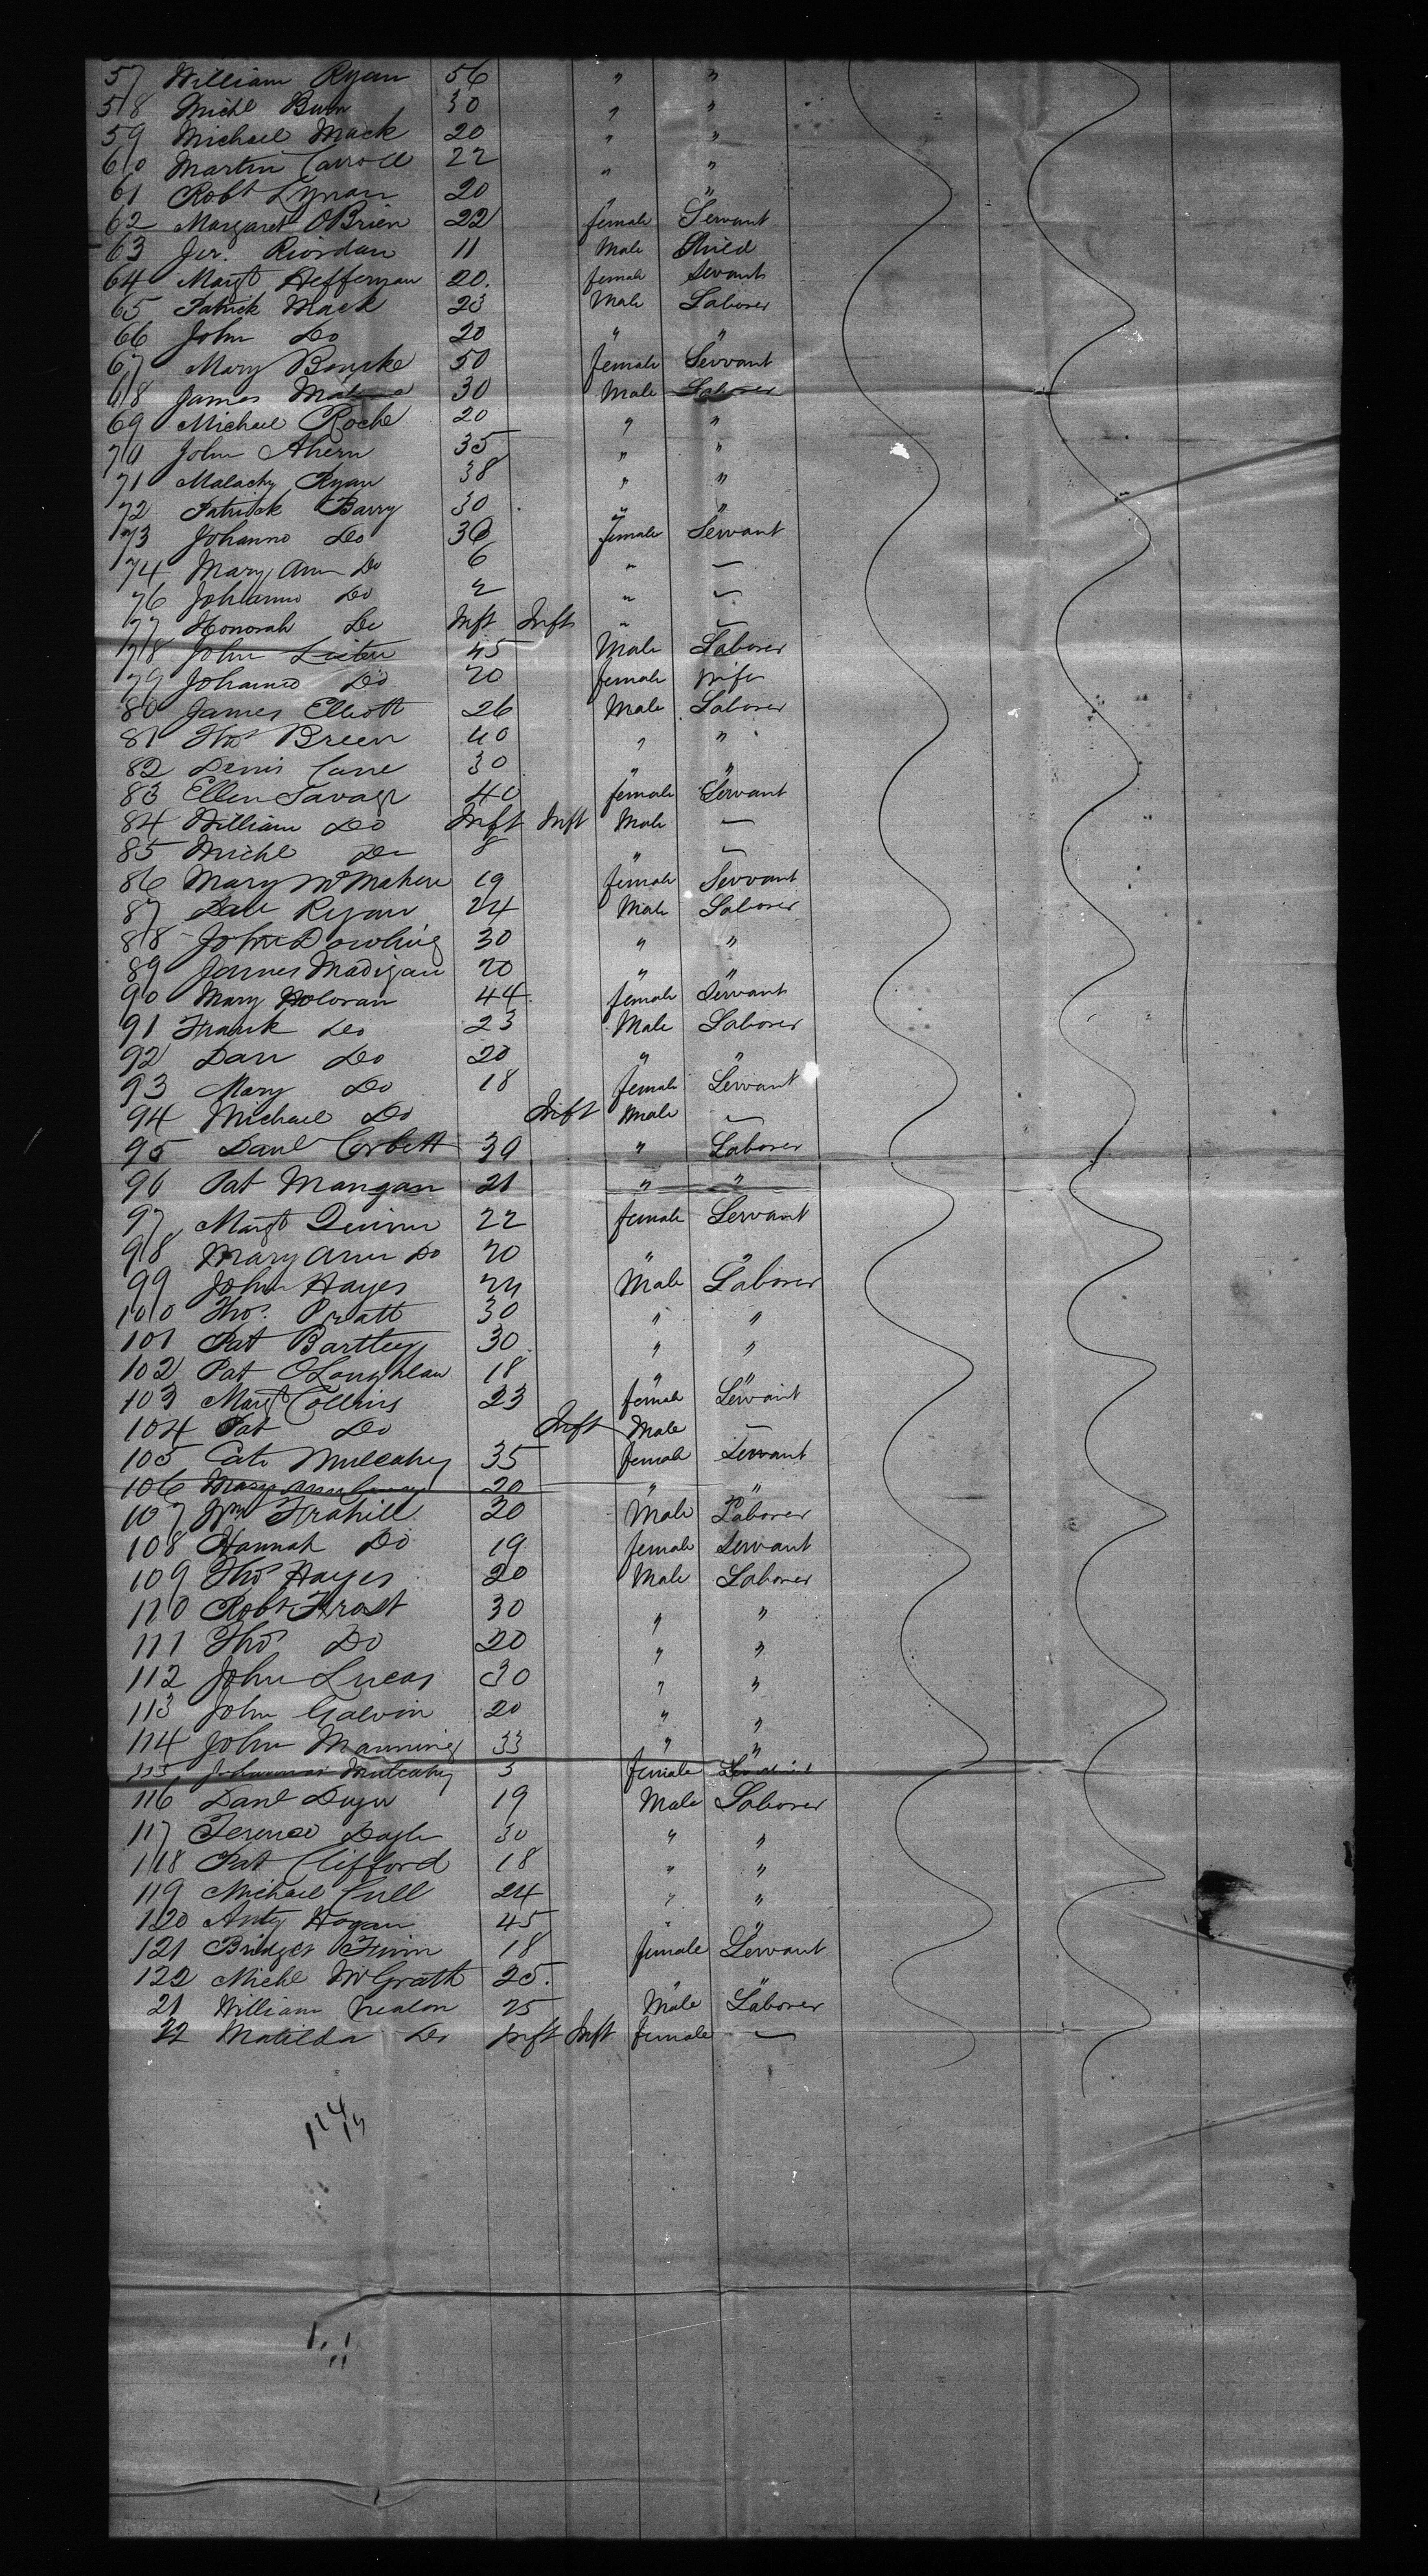 57 William Ryan 56 " "
58 Michl Burn 30 " "
59 Michael Mack 20 " "
60 Martin Carroll 22 " "
61 Robt Lynan 20 " "
62 Margaret OBrien 22 female Servant
63 Jer. Riordan 11 Male Child
64 Margt Heffernan 20. female Servant
65 Patrick Mack 23 Male Laborer
66 John Do 20 " "
67 Mary Bourke 50 female Servant
68 James 30 Male Laborer
69 Michael Roche 20 " "
70 John Ahern 35 " "
71 Malachy Ryan 38 " "
72 Patrick Barry 30 " "
73 Johanna Do 36 female Servant
74 Mary Ann Do 6 " —
76 Johanna Do 2 " —
77 Honorah Do Inft Inft " —
78 John Lister 45 Male Laborer
79 Johanna Do 20 female wife
80 James Elliott 26 Male Laborer
81 Thos Breen 40 " "
82 Denis Cane 30 " "
83 Ellen Savage 40 female Servant
84 William Do Inft Inft Male —
85 Michl Do 8 " —
86 Mary McMahon 19 female Servant
87 Ryan 24 Male Laborer
88 John Dowling 30 " "
89 James Madigan 20 " "
90 Mary Holoran 44 female Servant
91 Frank Do 23 Male Laborer
92 Dan Do 20 " "
93 Mary Do 18 female Servant
94 Michael Do Inft Male —
95 Danl Corbett 39 " Laborer
96 Pat Mangan 21 " "
97 Margt Quinn 22 female Servant
98 Mary Ann Do 20 " "
99 John Hayes 24 Male Laborer
100 Thos. Pratt 30 " "
101 Pat Bartley 30 " "
102 Pat OLoughlan 18 " "
103 Margt Collins 23 female Servant
104 Pat Do Inft Male —
105 Cate Mulcahy 35 female Servant
106 Mary 20 " "
107 Wm Frahill 30 Male Laborer
108 Hannah Do 19 female Servant
109 Thos Hayes 20 Male Laborer
110 Robt Frost 30 " "
111 Thos Do 20 " "
112 John Lucas 30 " "
113 John Galvin 20 " "
114 John Manning 33 " "
115 Johanna Mulcahy 3 female Servant
116 Danl Dwyer 19 Male Laborer
117 Terence Doyle 30 " "
118 Pat Clifford 18 " "
119 Michael Cull 24 " "
120 Anty Hogan 45 " "
121 Bridget Finn 18 female Servant
122 Michl McGrath 25. " "
21 William Nealon 25 Male Laborer
22 Matilda Do Inft Inft female —